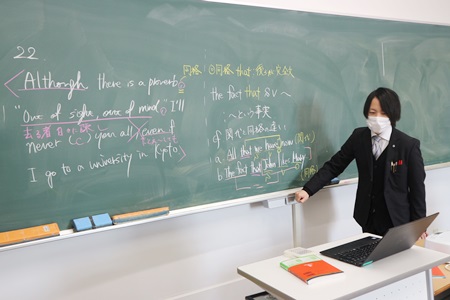 22.
Although there is a proverb
"Out of sight, out of mind," I'll
去る者日々に疎し
never (c) you all, even if
I go to a university in Kyoto.
同格 ①同格 that 後ろは完全文
the fact that S V ~
: ~という事実
cf 関代と同格の違い
a. all that we know now (関代)
b. the fact that John likes Mary
(同格)